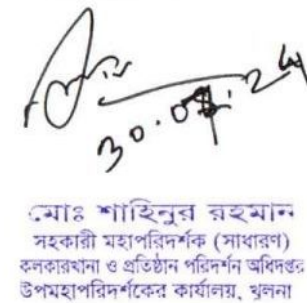 মোঃ শাহিনুর রহমান
সহকারী মহাপরিদর্শক (সাধারণ)
কলকারখানা ও প্রতিষ্ঠান পরিদর্শন অধিদপ্তর
উপমহাপরিদর্শকের কার্যালয়, খুলনা